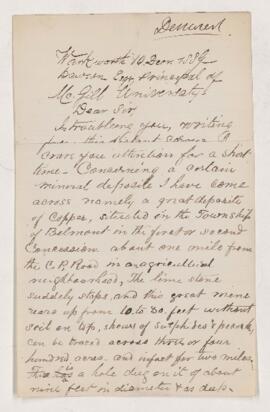 Warkworth 10 Decm 1889
Dawson Esq Principal of
McGill University
Dear Sir,
troubling you, writing
crave you attention for a short
time - Concerning a certain
mineral deposite I have come
across namely a great deposite
of Copper, situated in the Township
of Belmont in the first or second
Concession about one mile from
the C.P. Road in an agricultural
neighbourhood, The lime stone
suddely stops, and this great mine
rears up from 10 to 20 feet without
soil on top, shows of sulphides &
can be traced across three or four
hundred acres. and infact for two miles.
a hole dug on it of about
nine feet in diameter & as deep.